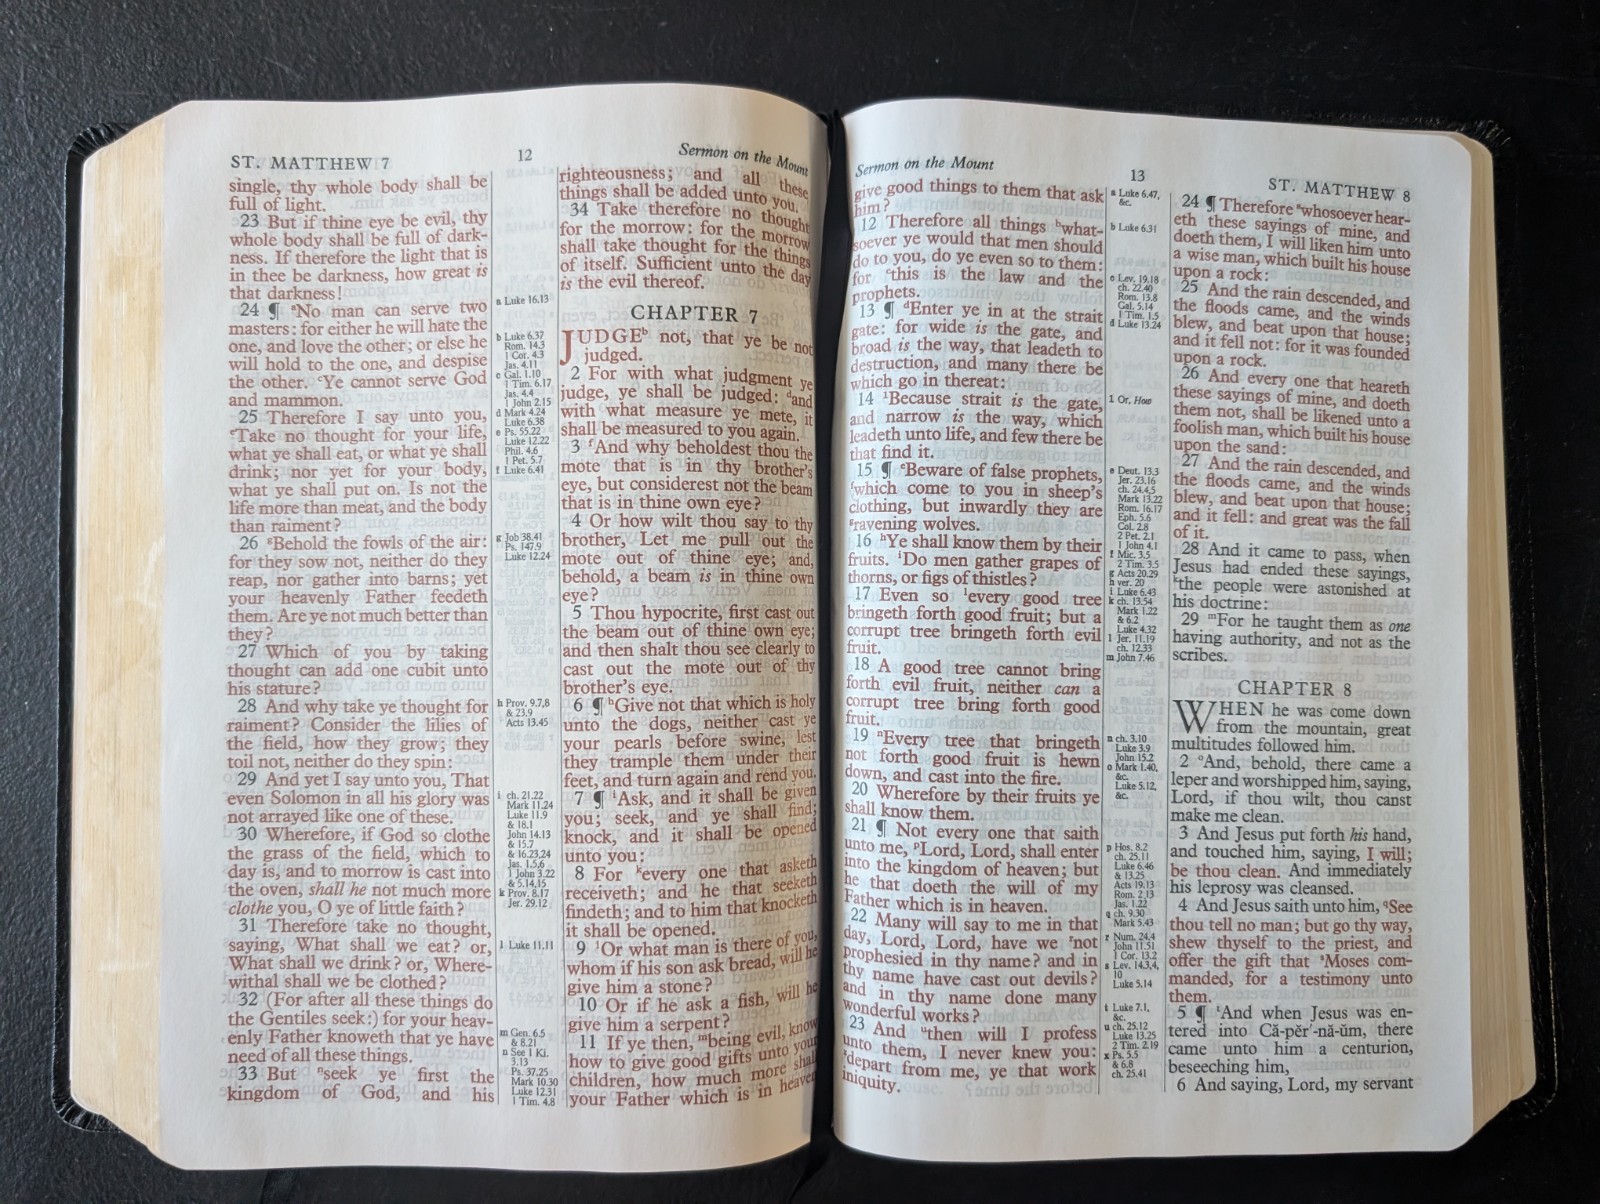 ST. MATTHEW 7
12
Sermon on the Mount
single, thy whole body shall be
full of light.
23 But if thine eye be evil, thy
whole body shall be full of dark-
ness. If therefore the light that is
in thee be darkness, how great is
that darkness!
24 ¶ ᵃNo man can serve two
masters: for either he will hate the
one, and love the other; or else he
will hold to the one, and despise
the other. ᶜYe cannot serve God
and mammon.
25 Therefore I say unto you,
ᵉTake no thought for your life,
what ye shall eat, or what ye shall
drink; nor yet for your body,
what ye shall put on. Is not the
life more than meat, and the body
than raiment?
26 ᵍBehold the fowls of the air:
for they sow not, neither do they
reap, nor gather into barns; yet
your heavenly Father feedeth
them. Are ye not much better than
they?
27 Which of you by taking
thought can add one cubit unto
his stature?
28 And why take ye thought for
raiment? Consider the lilies of
the field, how they grow; they
toil not, neither do they spin:
29 And yet I say unto you, That
even Solomon in all his glory was
not arrayed like one of these.
30 Wherefore, if God so clothe
the grass of the field, which to
day is, and to morrow is cast into
the oven, shall he not much more
clothe you, O ye of little faith?
31 Therefore take no thought,
saying, What shall we eat? or,
What shall we drink? or, Where-
withal shall we be clothed?
32 (For after all these things do
the Gentiles seek:) for your heav-
enly Father knoweth that ye have
need of all these things.
33 But ⁿseek ye first the
kingdom of God, and his
a Luke 16.13
b Luke 6.37
Rom. 14.3
1 Cor. 4.3
Jas. 4.11
c Gal. 1.10
1 Tim. 6.17
Jas. 4.4
1 John 2.15
d Mark 4.24
Luke 6.38
e Ps. 55.22
Luke 12.22
Phil. 4.6
1 Pet. 5.7
f Luke 6.41
g Job 38.41
Ps. 147.9
Luke 12.24
h Prov. 9.7,8
& 23.9
Acts 13.45
i ch. 21.22
Mark 11.24
Luke 11.9
& 18.1
John 14.13
& 15.7
& 16.23,24
Jas. 1.5,6
1 John 3.22
& 5.14,15
k Prov. 8.17
Jer. 29.12
l Luke 11.11
m Gen. 6.5
& 8.21
n See 1 Ki.
3.13
Ps. 37.25
Mark 10.30
Luke 12.31
1 Tim. 4.8
righteousness; and all these
things shall be added unto you.
34 Take therefore no thought
for the morrow: for the morrow
shall take thought for the things
of itself. Sufficient unto the day
is the evil thereof.
CHAPTER 7
JUDGEᵇ not, that ye be not
judged.
2 For with what judgment ye
judge, ye shall be judged: ᵈand
with what measure ye mete, it
shall be measured to you again.
3 ᶠAnd why beholdest thou the
mote that is in thy brother's
eye, but considerest not the beam
that is in thine own eye?
4 Or how wilt thou say to thy
brother, Let me pull out the
mote out of thine eye; and,
behold, a beam is in thine own
eye?
5 Thou hypocrite, first cast out
the beam out of thine own eye;
and then shalt thou see clearly to
cast out the mote out of thy
brother's eye.
6 ¶ ʰGive not that which is holy
unto the dogs, neither cast ye
your pearls before swine, lest
they trample them under their
feet, and turn again and rend you.
7 ¶ ⁱAsk, and it shall be given
you; seek, and ye shall find;
knock, and it shall be opened
unto you:
8 For ᵏevery one that asketh
receiveth; and he that seeketh
findeth; and to him that knocketh
it shall be opened.
9 ˡOr what man is there of you,
whom if his son ask bread, will he
give him a stone?
10 Or if he ask a fish, will he
give him a serpent?
11 If ye then, ᵐbeing evil, know
how to give good gifts unto your
children, how much more shall
your Father which is in heaven
Sermon on the Mount
13
ST. MATTHEW 8
give good things to them that ask
him?
12 Therefore all things ᵇwhat-
soever ye would that men should
do to you, do ye even so to them:
for ᶜthis is the law and the
prophets.
13 ¶ ᵈEnter ye in at the strait
gate: for wide is the gate, and
broad is the way, that leadeth to
destruction, and many there be
which go in thereat:
14 ¹Because strait is the gate,
and narrow is the way, which
leadeth unto life, and few there be
that find it.
15 ¶ ᵉBeware of false prophets,
ᶠwhich come to you in sheep's
clothing, but inwardly they are
ᵍravening wolves.
16 ʰYe shall know them by their
fruits. ⁱDo men gather grapes of
thorns, or figs of thistles?
17 Even so ˡevery good tree
bringeth forth good fruit; but a
corrupt tree bringeth forth evil
fruit.
18 A good tree cannot bring
forth evil fruit, neither can a
corrupt tree bring forth good
fruit.
19 ⁿEvery tree that bringeth
not forth good fruit is hewn
down, and cast into the fire.
20 Wherefore by their fruits ye
shall know them.
21 ¶ Not every one that saith
unto me, ᵖLord, Lord, shall enter
into the kingdom of heaven; but
he that doeth the will of my
Father which is in heaven.
22 Many will say to me in that
day, Lord, Lord, have we ʳnot
prophesied in thy name? and in
thy name have cast out devils?
and in thy name done many
wonderful works?
23 And ᵘthen will I profess
unto them, I never knew you:
ˣdepart from me, ye that work
iniquity.
a Luke 6.47,
&c.
b Luke 6.31
c Lev. 19.18
ch. 22.40
Rom. 13.8
Gal. 5.14
1 Tim. 1.5
d Luke 13.24
1 Or, How
e Deut. 13.3
Jer. 23.16
ch. 24.4,5
Mark 13.22
Rom. 16.17
Eph. 5.6
Col. 2.8
2 Pet. 2.1
1 John 4.1
f Mic. 3.5
2 Tim. 3.5
g Acts 20.29
h ver. 20
i Luke 6.43
k ch. 13.54
Mark 1.22
& 6.2
Luke 4.32
l Jer. 11.19
ch. 12.33
m John 7.46
n ch. 3.10
Luke 3.9
John 15.2
o Mark 1.40,
&c.
Luke 5.12,
&c.
p Hos. 8.2
ch. 25.11
Luke 6.46
& 13.25
Acts 19.13
Rom. 2.13
Jas. 1.22
q ch. 9.30
Mark 5.43
r Num. 24.4
John 11.51
1 Cor. 13.2
s Lev. 14.3,4,
10
Luke 5.14
t Luke 7.1,
&c.
u ch. 25.12
Luke 13.25
2 Tim. 2.19
x Ps. 5.5
& 6.8
ch. 25.41
24 ¶ Therefore ᵃwhosoever hear-
eth these sayings of mine, and
doeth them, I will liken him unto
a wise man, which built his house
upon a rock:
25 And the rain descended, and
the floods came, and the winds
blew, and beat upon that house;
and it fell not: for it was founded
upon a rock.
26 And every one that heareth
these sayings of mine, and doeth
them not, shall be likened unto a
foolish man, which built his house
upon the sand:
27 And the rain descended, and
the floods came, and the winds
blew, and beat upon that house;
and it fell: and great was the fall
of it.
28 And it came to pass, when
Jesus had ended these sayings,
ᵏthe people were astonished at
his doctrine:
29 ᵐFor he taught them as one
having authority, and not as the
scribes.
CHAPTER 8
WHEN he was come down
from the mountain, great
multitudes followed him.
2 ᵒAnd, behold, there came a
leper and worshipped him, saying,
Lord, if thou wilt, thou canst
make me clean.
3 And Jesus put forth his hand,
and touched him, saying, I will;
be thou clean. And immediately
his leprosy was cleansed.
4 And Jesus saith unto him, ᑫSee
thou tell no man; but go thy way,
shew thyself to the priest, and
offer the gift that ˢMoses com-
manded, for a testimony unto
them.
5 ¶ ᵗAnd when Jesus was en-
tered into Că-pĕr′-nă-ŭm, there
came unto him a centurion,
beseeching him,
6 And saying, Lord, my servant